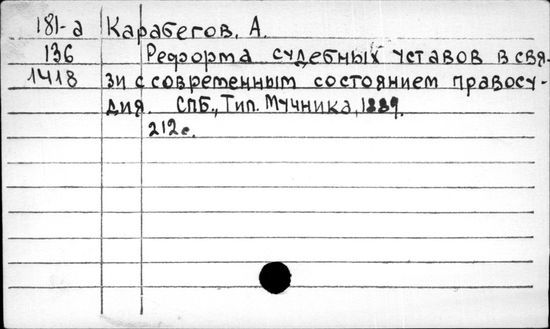 181-а Карабегов, А.
136 Реформа судебных уставов в свя-
1418 зи с современным состоянием правосу-
дия. СПБ., Тип. Мучника, 1889.
212с.